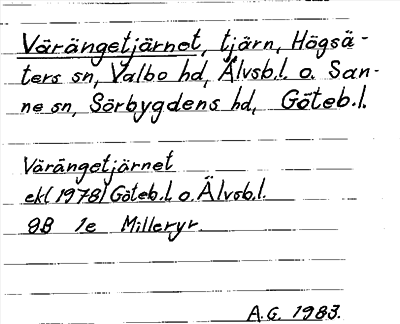 Värängetjärnet, tjärn, Högsä-
ters sn, Valbo hd, Älvsb.l. o. San-
ne sn, Sörbygdens hd, Göteb.l.
Värängetjärnet
ekl (1978) Göteb.l. o. Älvsb.l.
9B 1e Milleryr
A.G. 1983.